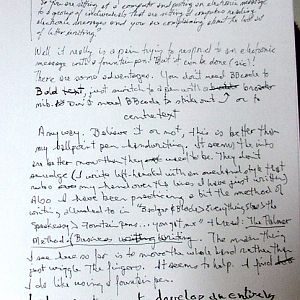 So you sitting at a computer and putting an electronic message
to a group of individuals that are sitting at computers
electronic messages and you are complaining about the lost art
of letter writing?
Well it really is a pain trying to respond to an electronic
message with a fountain pen! But it can be done (sic)!
There are some advantages. You don't need BBcode to
Bold text, just switch to a pen with a broader
nib. Don't need BBcode to strike out or to
center text
Anyway. Believe it or not, this is better than
my ballpoint pen handwriting. It seems the inks
are better now than they used to be. They don't
smudge (I write left-handed with an overhand style that
rubs my hand over the lines I have just written)
Also I have been practicing a bit the method of
writing alluded to in
fountain pens... you got me" thread: The Palmer
Method of Business Writing. The main thing
I see here so far is to move the whole hand rather than
just wiggle the fingers. It seems to help. I find
I do like using a fountain pen.
develop an entirely